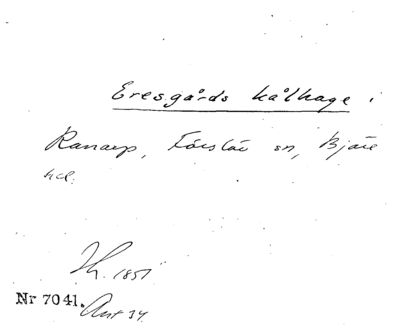 Eresgårds kålhage i
Ranarp, Förslöv sn, Bjäre
hd.
1851
Nr 7041. Ant 34.